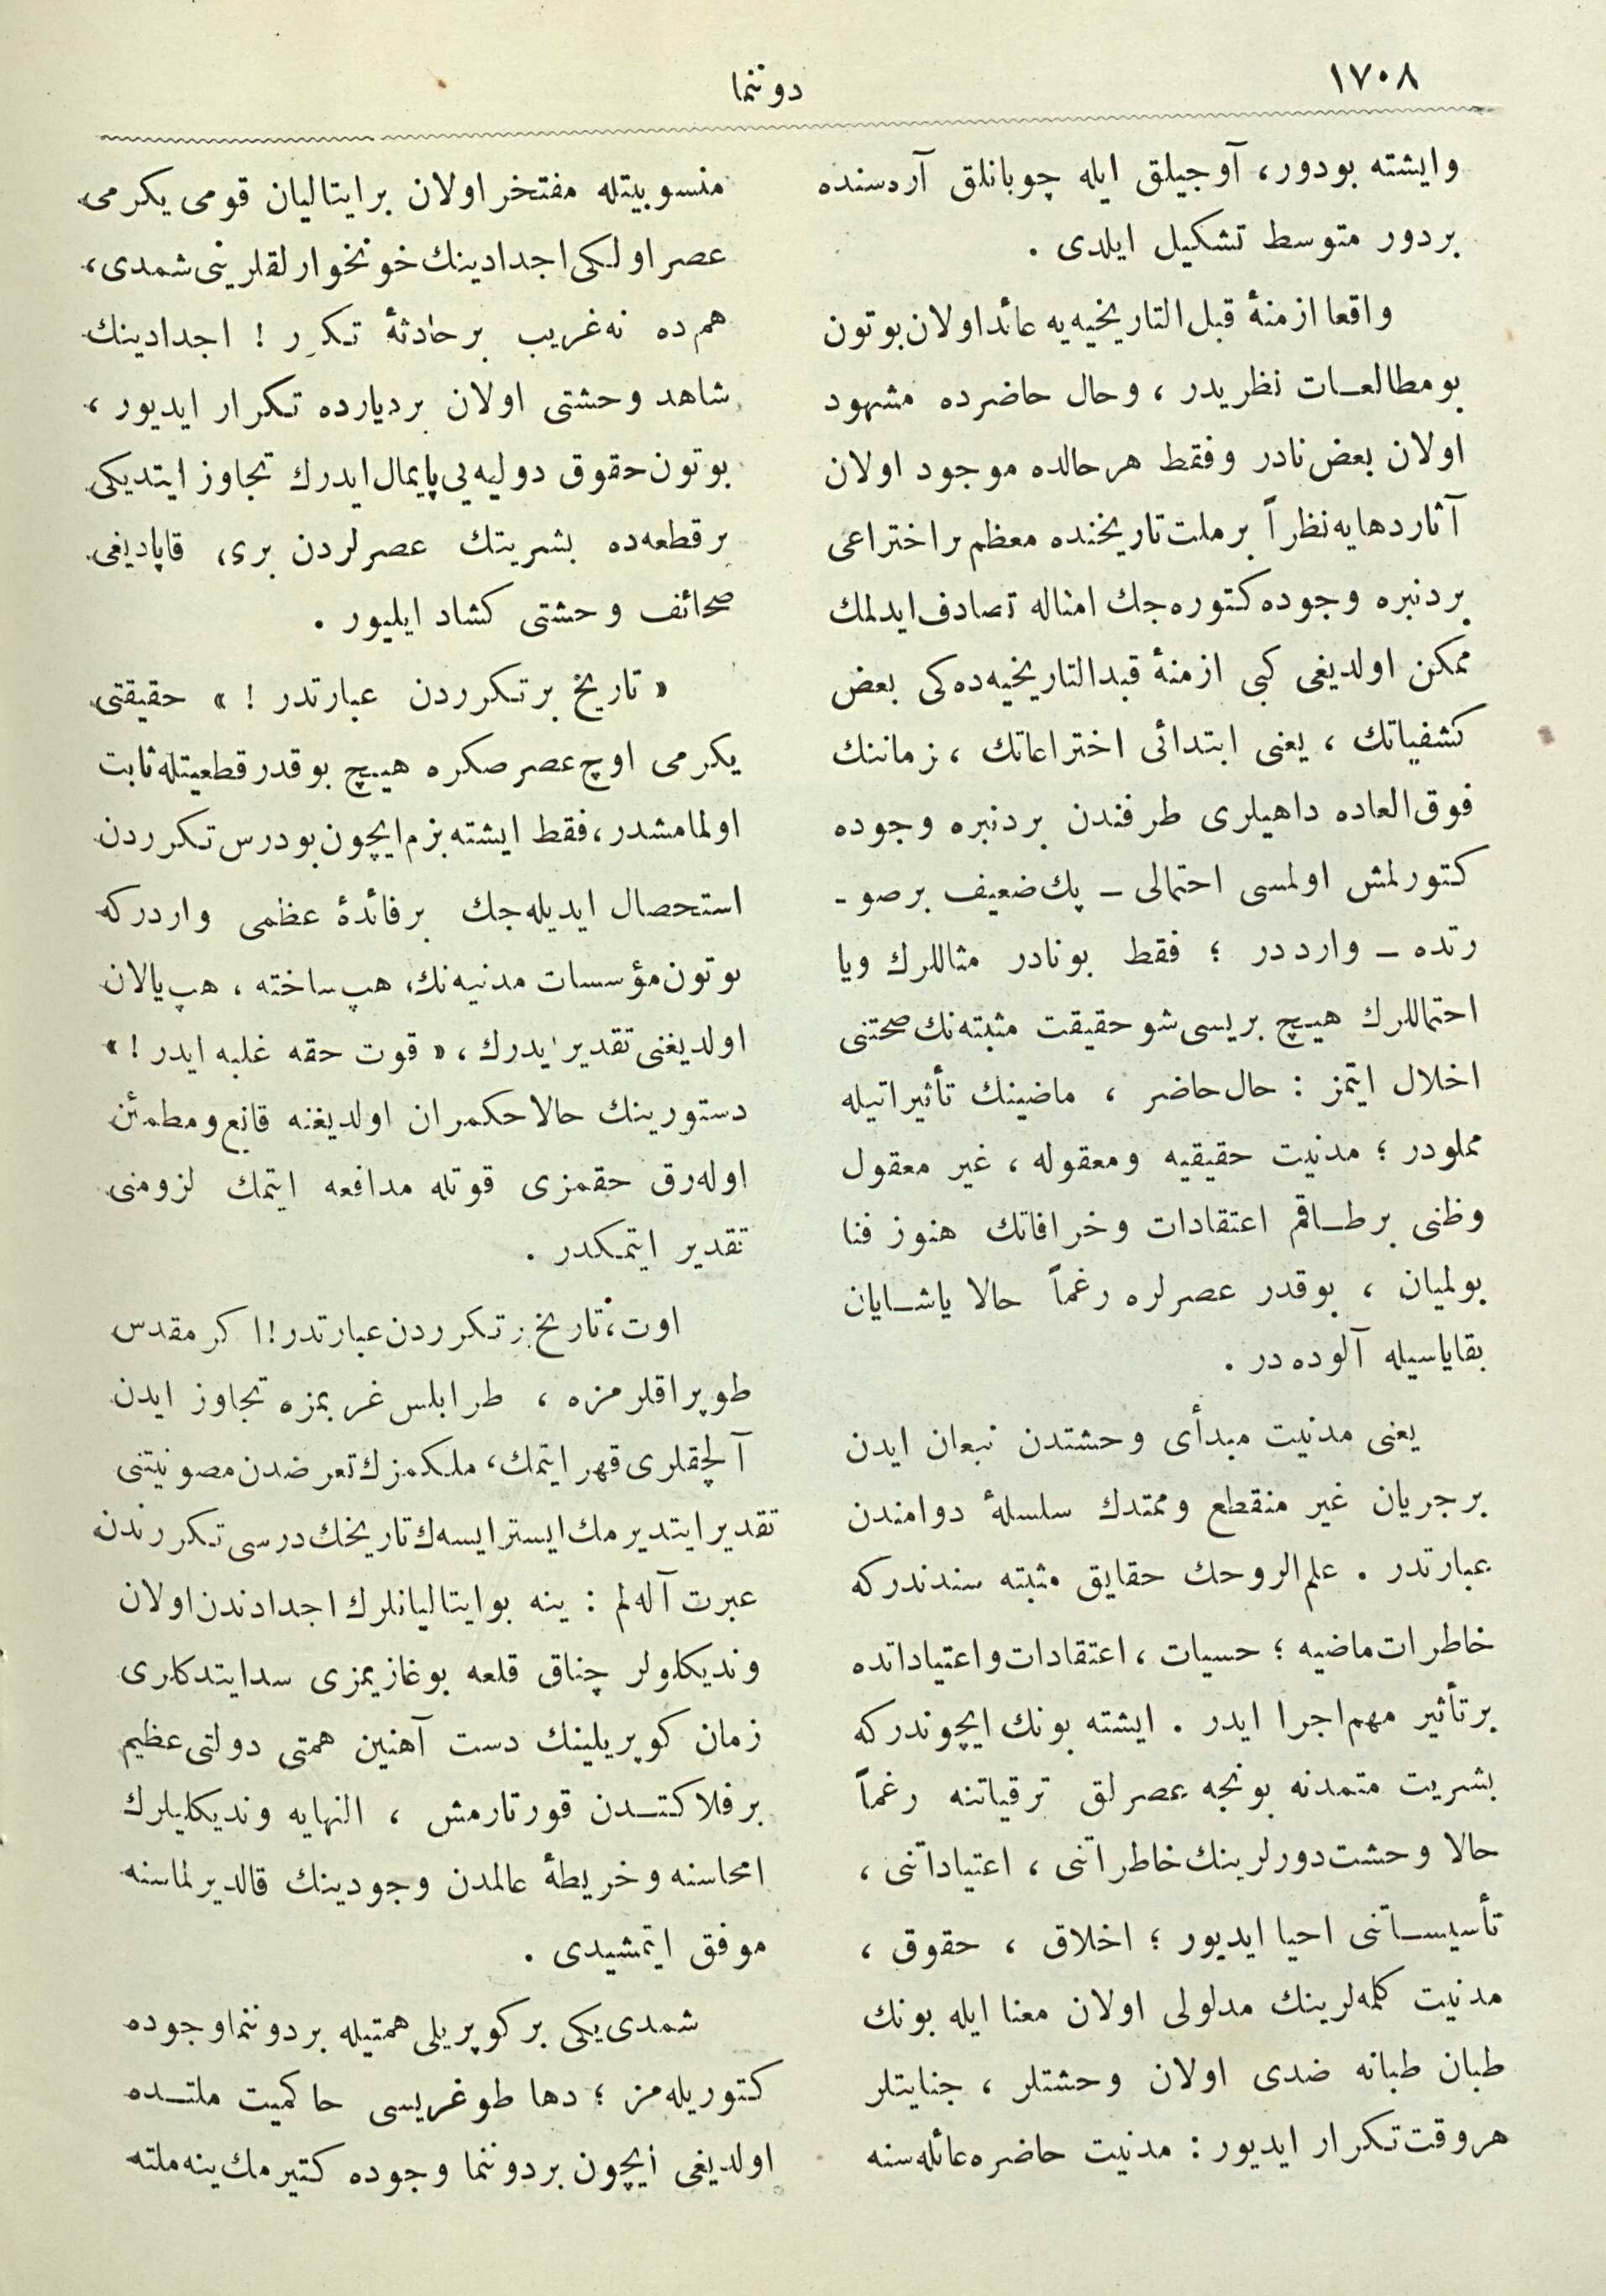 ١٧٠٨
دوننما
وايشته بودور، آوجيلق ايله چوبانلق آره‌سنده
بردور متوسط تشكيل ايلدى .
واقعا ازمنۀ قبل‌التاريخيه‌يه عائد اولان بوتون
بومطالعـات نظريدر ، وحال حاضرده مشهود
اولان بعض نادر وفقط هر حالده موجود اولان
آثاردهايه نظراً برملت تاريخنده معظم براختراعى
بردنبره وجوده كتوره‌جك امثاله تصادف ايدلمك
ممكن اولديغى كبى ازمنۀ قبدالتاريخيه‌ده‌كى بعض
كشفياتك ، يعنى ابتدائى اختراعاتك ، زماننك
فوق‌العاده داهيلرى طرفندن بردنبره وجوده
كتورلمش اولمسى احتمالى ــ پك ضعيف برصو ـ
رتده ــ وارددر ؛ فقط بونادر مثاللرك ويا
احتماللرك هيـچ بريسى شو حقيقت مثبته‌نك صحتنى
اخلال ايتمز : حال حاضر ، ماضينك تأثيراتيله
مملودر ؛ مدنيت حقيقيه ومعقوله ، غير معقول
وظنى برطـاقم اعتقادات وخرافاتك هنوز فنا
بولميان ، بوقدر عصرلره رغماً حالا ياشـايان
بقاياسيله آلوده‌در .
يعنى مدنيت مبدأى وحشتدن نبعان ايدن
برجريان غير منقطع وممتدك سلسلۀ دوامندن
عبارتدر . علم‌الروحك حقايق مثبته سندندركه
خاطرات ماضيه ؛ حسيات ، اعتقادات واعتياداتده
برتأثير مهم اجرا ايدر . ايشته بونك ايچوندركه
بشريت متمدنه بونجه عصرلق ترقياتنه رغماً
حالا وحشت دورلرينك خاطراتنى ، اعتياداتنى ،
تأسيسـاتنى احيا ايديور ؛ اخلاق ، حقوق ،
مدنيت كلمه‌لرينك مدلولى اولان معنا ايله بونك
طبان طبانه ضدى اولان وحشتلر ، جنايتلر
هروقت تكرار ايديور : مدنيت حاضره عائله‌سنه
منسوبيتله مفتخر اولان برايتاليان قومى يكرمى
عصر اولكى اجدادينك خونخوارلقلرينى شمدى،
هم‌ده نه‌غريب برحادثۀ تكرر ! اجدادينك
شاهد وحشتى اولان برديارده تكرار ايديور ،
بوتون حقوق دوليه‌يى پايمال ايدرك تجاوز ايتديكى
برقطعه‌ده بشريتك عصرلردن برى، قاپاديغى
صحائف وحشتى كشاد ايليور .
« تاريخ برتكرردن عبارتدر ! » حقيقتى
يكرمى اوچ عصر صكره هيـچ بوقدر قطعيتله ثابت
اولمامشدر، فقط ايشته بزم ايچون بودرس تكرردن
استحصال ايديله‌جك برفائدۀ عظمى واردركه
بوتون مؤسسات مدنيه‌نك، هپ ساخته ، هپ يالان
اولديغنى تقدير ايدرك ، « قوت حقه غلبه ايدر ! »
دستورينك حالا حكمران اولديغنه قانع ومطمئن
اوله‌رق حقمزى قوتله مدافعه ايتمك لزومنى
تقدير ايتمكدر .
اوت، تاريخ بر تكرردن عبارتدر! اكر مقدس
طوپراقلرمزه ، طرابلس غربمزه تجاوز ايدن
آلچقلرى قهر ايتمك، ملكمزك تعرضدن مصونيتنى
تقدير ايتديرمك ايسترايسه‌ك تاريخك درسى تكررندن
عبرت آله‌لم : ينه بوايتاليانلرك اجدادندن اولان
ونديكلولر چناق قلعه بوغازيمزى سد ايتدكلرى
زمان كوپريلينك دست آهنين همتى دولتى عظيم
برفلاكتـدن قورتارمش ، النهايه ونديكليلرك
امحاسنه وخريطۀ عالمدن وجودينك قالديرلماسنه
موفق ايتمشيدى .
شمدى يكى بركوپريلى همتيله بردوننما وجوده
كتوريله‌مز ؛ دها طوغريسى حاكميت ملتـده
اولديغى ايچون بردوننما وجوده كتيرمك ينه ملته